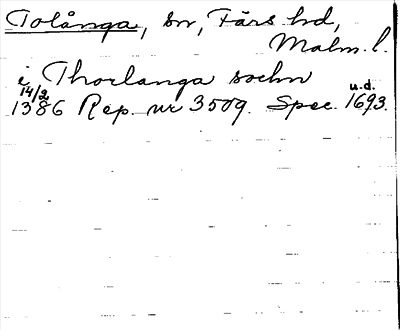 Tolånga, sn, Färs hd,
Malm. l.
i Thorlanga sochn
14/2 1386 Rep. nr 3509. Spec. u.d. 1693.